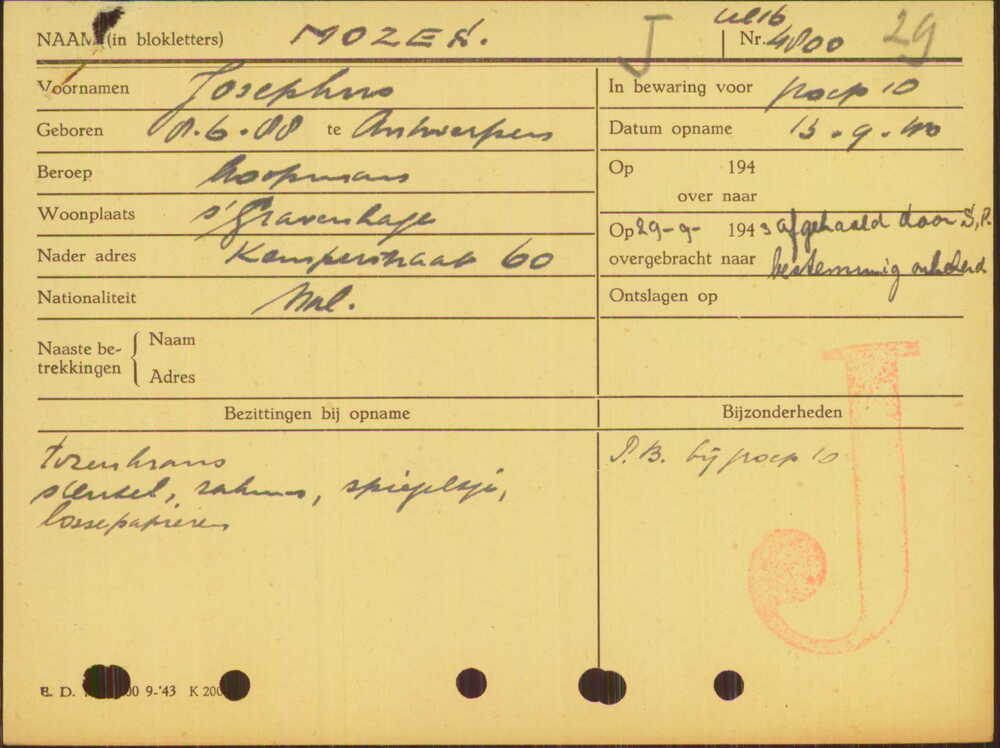 NAAM (in blokletters) MOZES. J Nr. 4800 29
Voornamen Josephus
Geboren 8.6.88 te Antwerpen
Beroep koopman
Woonplaats s'Gravenhage
Nader adres Kemperstraat 60
Nationaliteit Ned.
Naaste betrekkingen
Naam
Adres
In bewaring voor groep 10
Datum opname 15.9.
Op 194
over naar
Op 29-9- 1943 afgehaald door S.P.
overgebracht naar bestemming onbekend
Ontslagen op
Bezittingen bij opname
rozenkrans
sleutel, zakmes, spiegeltje,
losse papieren
Bijzonderheden
P.B. bij groep 10
J
E. D. 00 9-'43 K 200